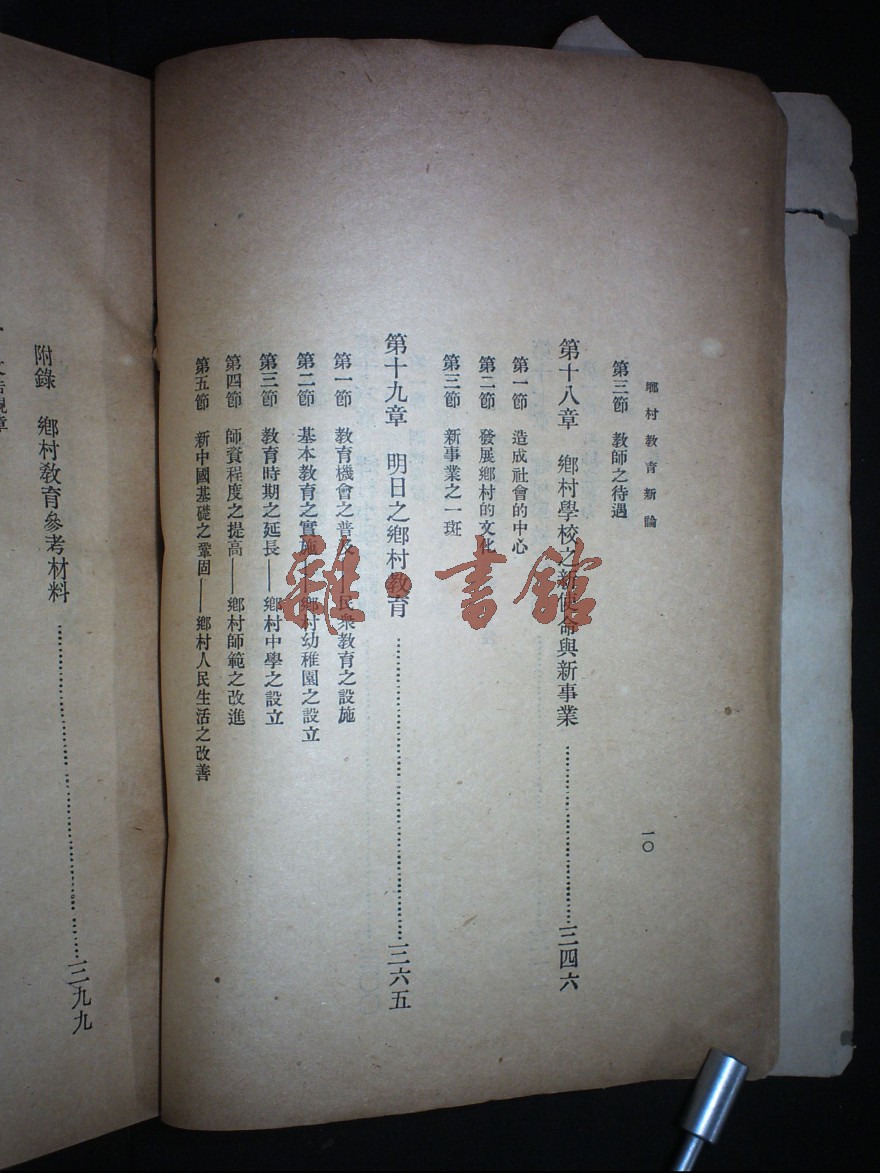 鄉村教育新論
一〇
第三節 教師之待遇
第十八章 鄉村學校之新使命與新事業……三四六
第一節 造成社會的中心
第二節 發展鄉村的文化
第三節 新事業之一斑
第十九章 明日之鄉村教育……三六五
第一節 教育機會之普及——民衆教育之設施
第二節 基本教育之實施——鄉村幼稚園之設立
第三節 教育時期之延長——鄉村中學之設立
第四節 師資程度之提高——鄉村師範之改進
第五節 新中國基礎之鞏固——鄉村人民生活之改善
附錄 鄉村教育參考材料……三九九
雜·書館